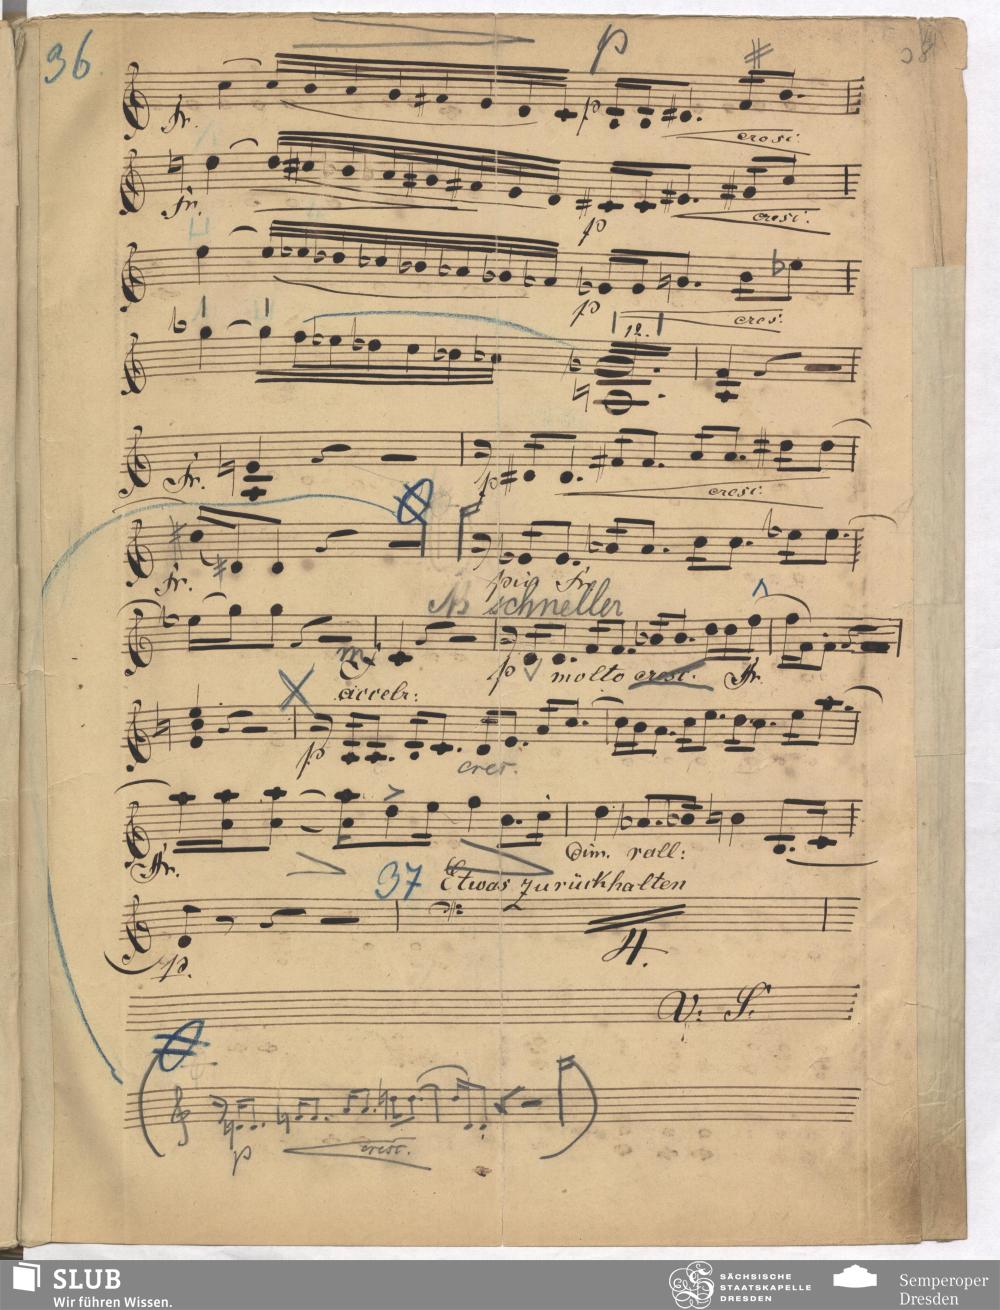 36
p
fr. p cresc.
fr. p cresc.
p cresc.
12.
fr. p cresc.
fr. più fr.
schneller
mf p molto cresc. fr.
accelr:
p cres.
fr. Dim. rall:
37 Etwas zurückhalten
p. 4.
V: S:
p cresc.
SLUB
Wir führen Wissen.
SÄCHSISCHE
STAATSKAPELLE
DRESDEN
Semperoper
Dresden